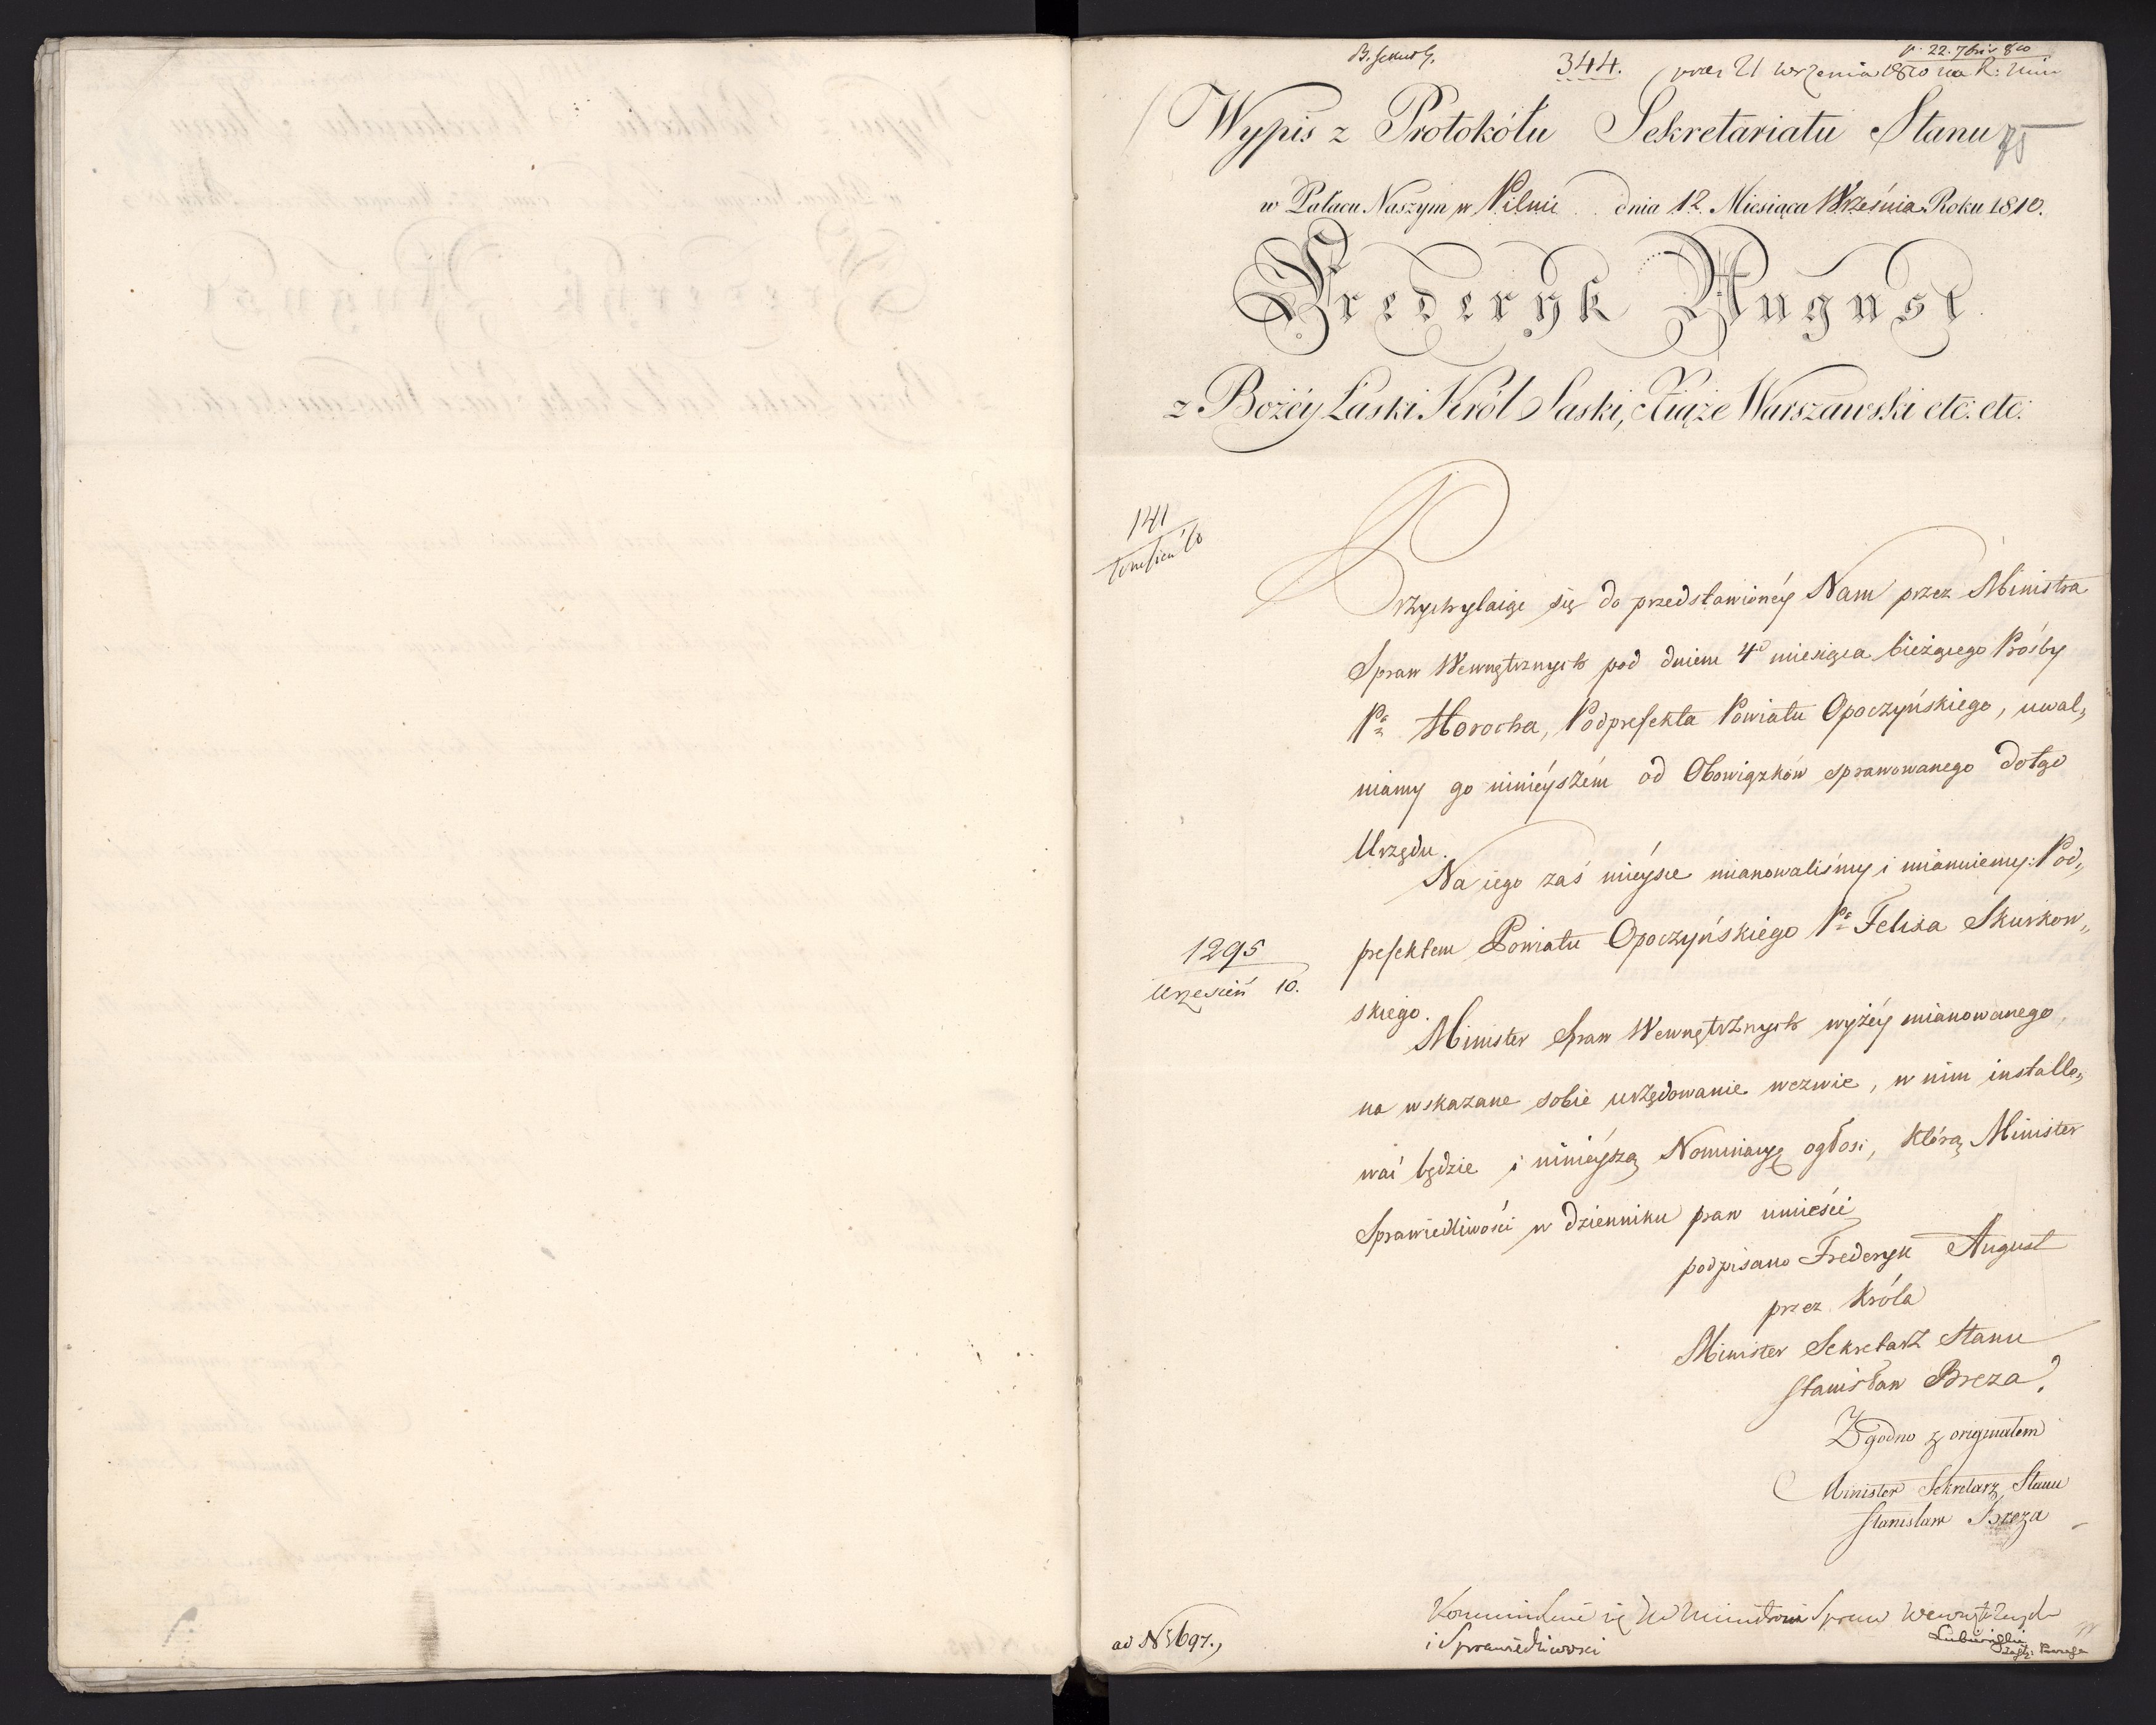 344.
Wypis z Protokółu Sekretariatu Stanu
w Pałacu Naszym w Pilnie dnia 12. Miesiąca Września Roku 1810.
Frederyk August
z Bożéy Łaski Król Saski, Xiąże Warszawski etc: etc:
141
Przychylaiąc się do przedstawionéy Nam przez Ministra
Spraw Wewnętrznych pod dniem 4º miesiąca bieżącego Prośby
Pª Horocha, Podprefekta Powiatu Opoczyńskiego, uwal„
niamy go ninieyszém od Obowiązków sprawowanego dotąd
Urzędu.
Na iego zaś mieysce mianowaliśmy i mianuiemy: Pod„
prefektem Powiatu Opoczyńskiego Pª Felixa Skurkow„
1295
Wrzesień 10.
skiego.
Minister Spraw Wewnętrznych wyżéy mianowanego,
na wskazane sobie urzędowanie wezwie, w nim installo„
wać będzie i ninieyszą Nominacyę ogłosi, którą Minister
Sprawiedliwości w dzienniku praw umieści
podpisano Frederyk August
przez Króla
Minister Sekretarz Stanu
Stanisław Breza.
Zgodno z originałem
Minister Sekretarz Stanu
Stanisław Breza
ad N 1697.,
Kommunikuie się Ministrowi Spraw Wewnętrznych
i Sprawiedliwości